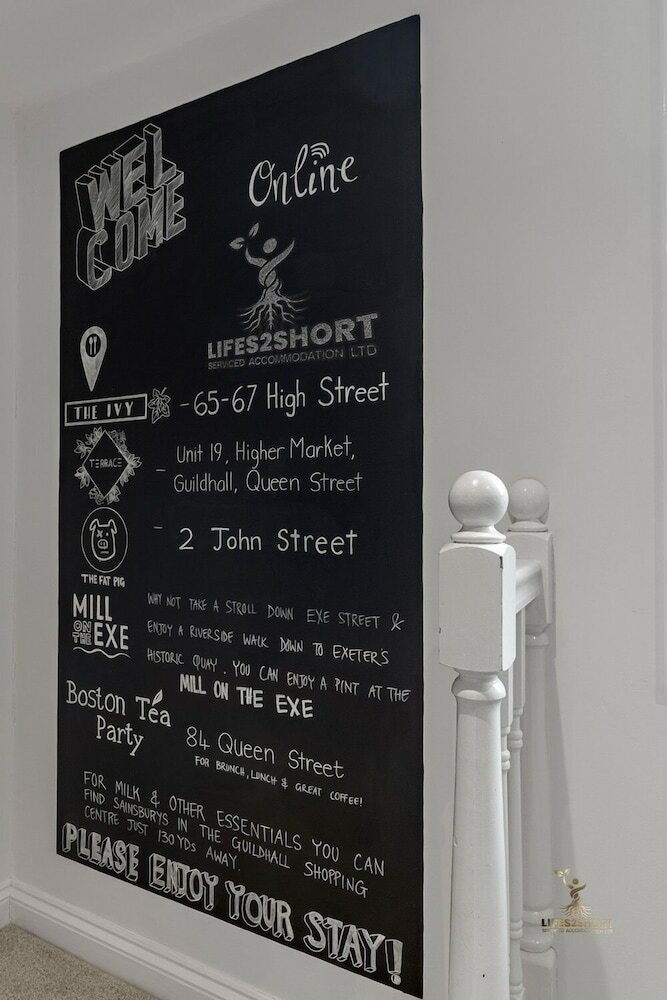 WEL
COME
Online
LIFES2SHORT
SERVICED ACCOMMODATION LTD
THE IVY - 65-67 High Street
TERRACE - Unit 19, Higher Market,
Guildhall, Queen Street
- 2 John Street
THE FAT PIG
MILL
ON THE EXE
WHY NOT TAKE A STROLL DOWN EXE STREET &
ENJOY A RIVERSIDE WALK DOWN TO EXETER'S
HISTORIC QUAY. YOU CAN ENJOY A PINT AT THE
MILL ON THE EXE
Boston Tea
Party
84 Queen Street
FOR BRUNCH, LUNCH & GREAT COFFEE!
FOR MILK & OTHER ESSENTIALS YOU CAN
FIND SAINSBURYS IN THE GUILDHALL SHOPPING
CENTRE JUST 130YDs AWAY.
PLEASE ENJOY YOUR STAY!
LIFES2SHORT
SERVICED ACCOMMODATION LTD